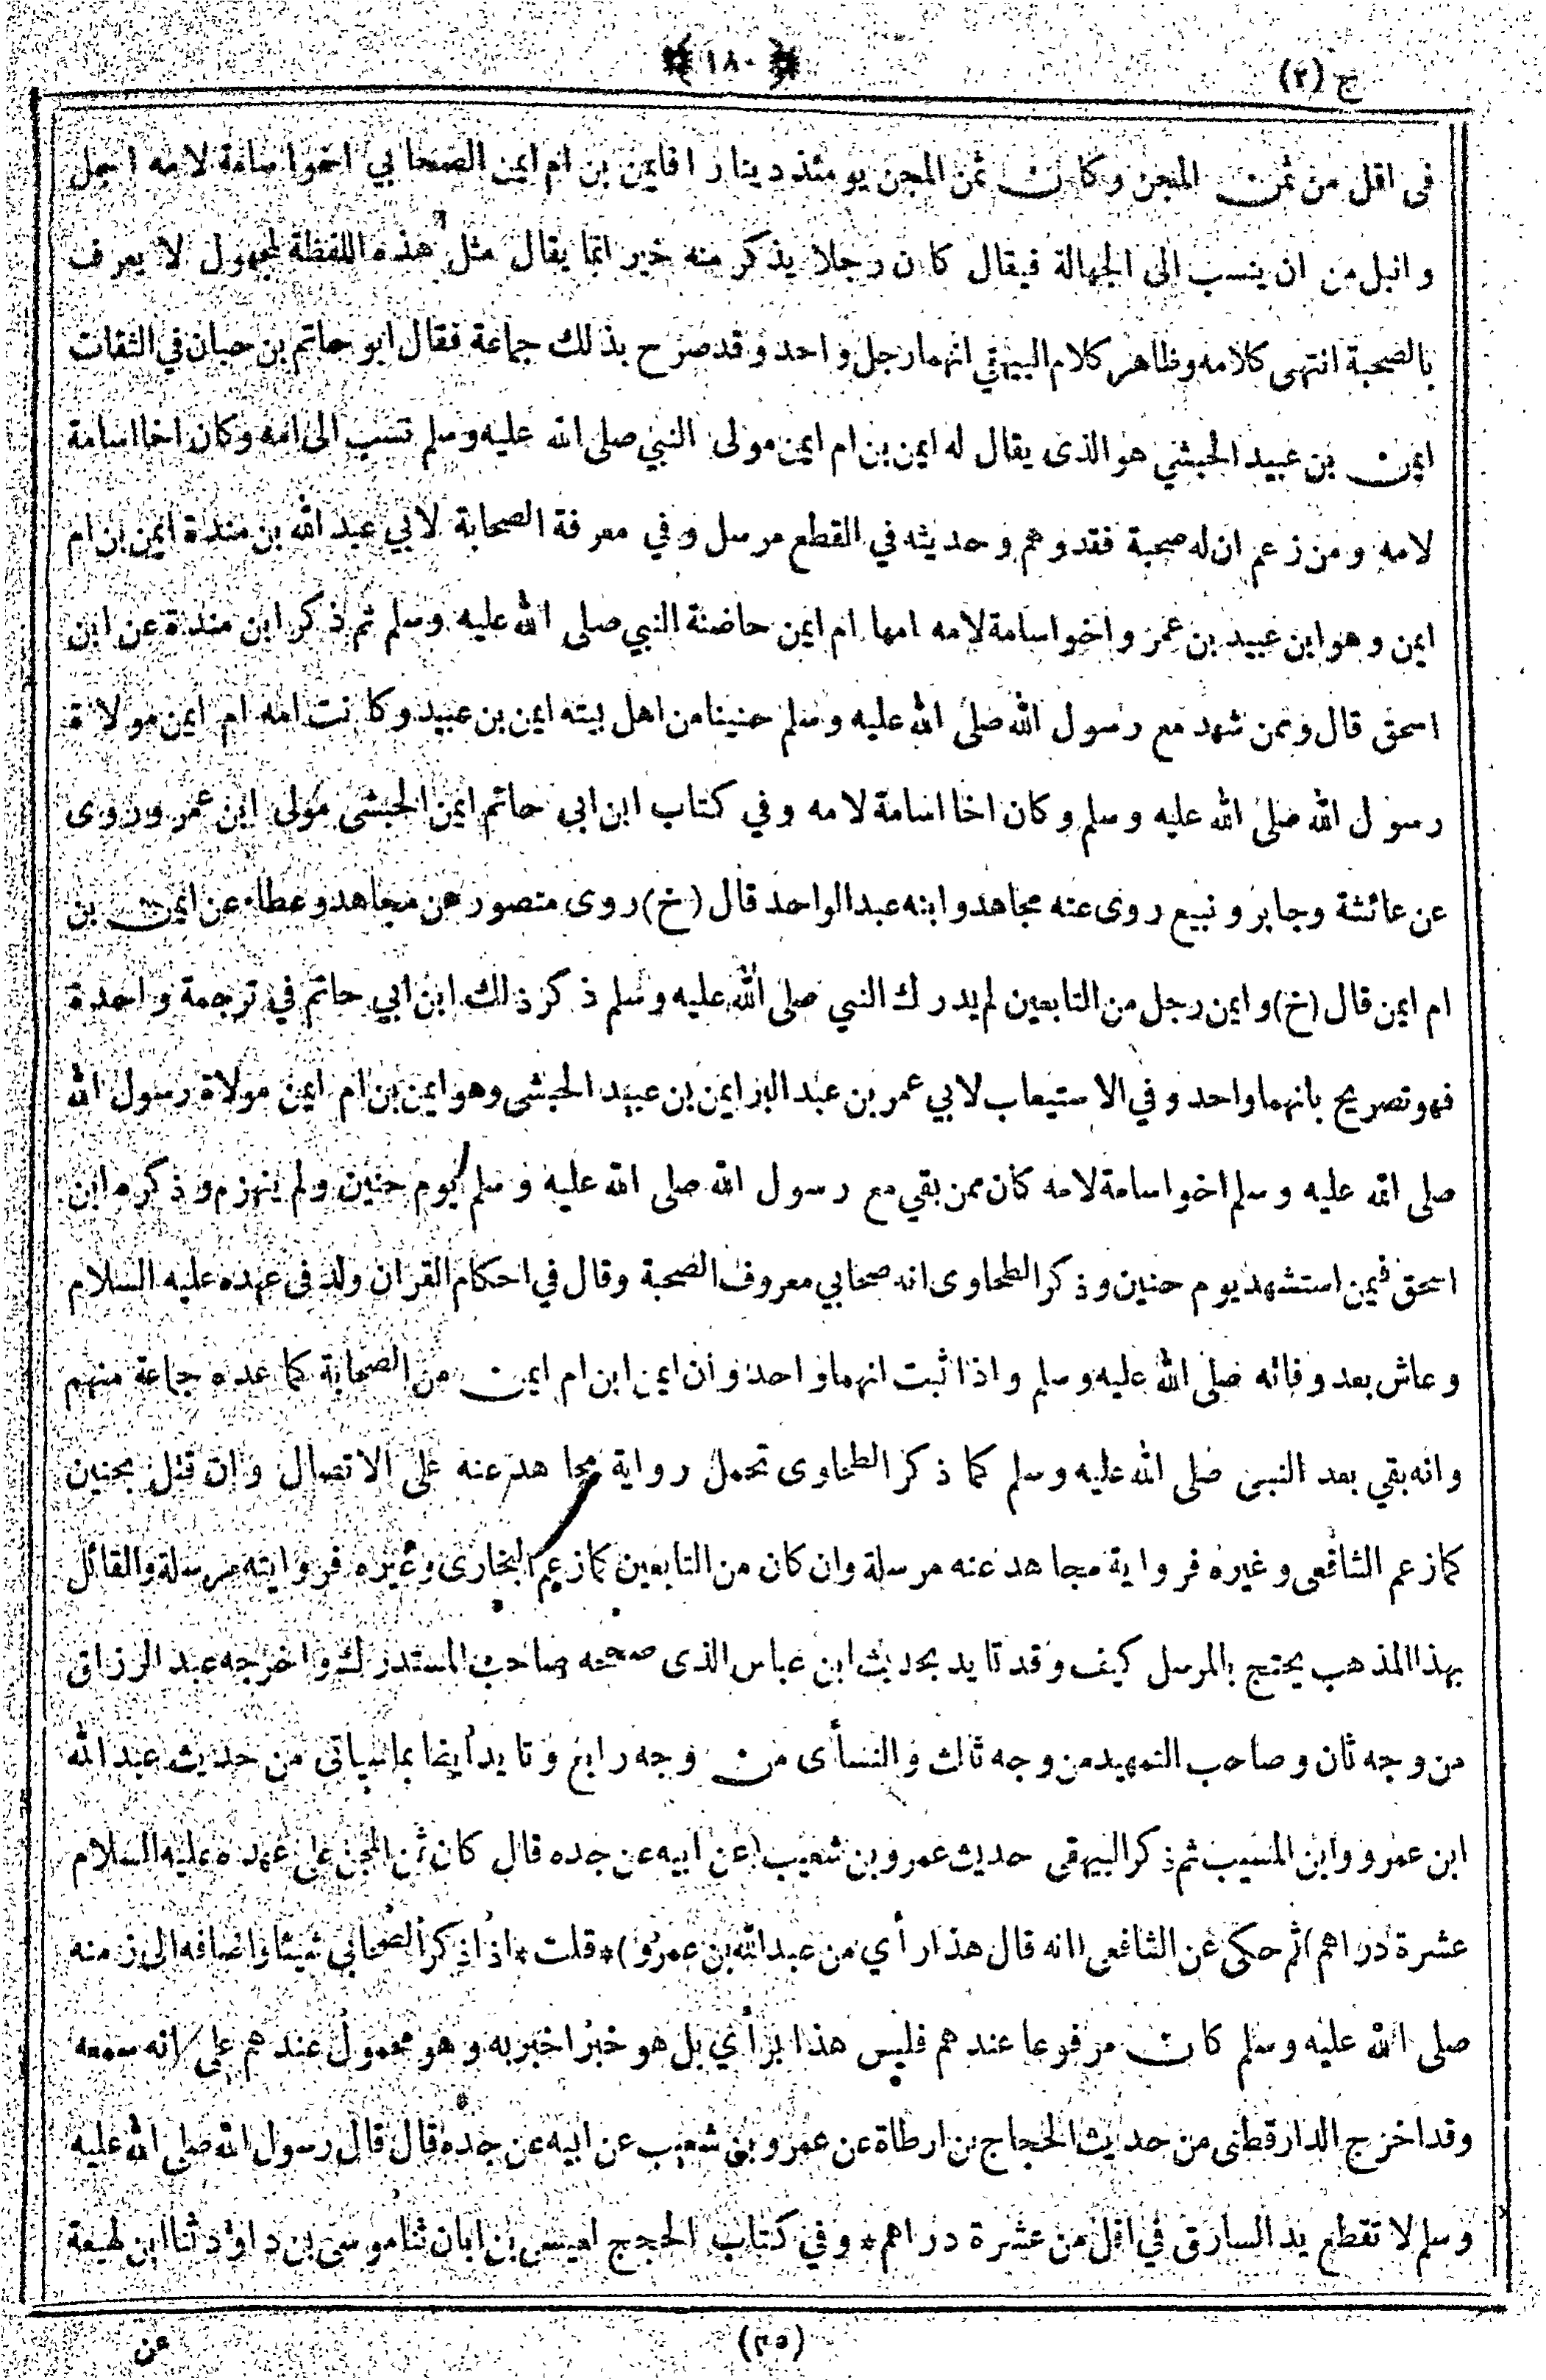 ج (٢)
﴿١٨٠﴾
فى اقل من ثمن المجن وكان ثمن المجن يومئذ دينارا فايمن بن ام ايمن الصحابي اخو اسامة لامه اجل
وانبل من ان ينسب الى الجهالة فيقال كان رجلا يذكر منه خير انما يقال مثل هذه اللفظة لمجهول لا يعرف
بالصحبة انتهى كلامه وظاهر كلام البيهقي انهما رجل واحد وقد صرح بذلك جماعة فقال ابو حاتم بن حبان في الثقات
ايمن بن عبيد الحبشي هو الذى يقال له ايمن بن ام ايمن مولى النبي صلى الله عليه وسلم نسب الى امه وكان اخا اسامة
لامه ومن زعم ان له صحبة فقد وهم وحديثه في القطع مرسل وفي معرفة الصحابة لابي عبد الله بن مندة ايمن بن ام
ايمن وهو ابن عبيد بن عمر واخو اسامة لامه امها ام ايمن حاضنة النبي صلى الله عليه وسلم ثم ذكر ابن مندة عن ابن
اسحق قال وممن شهد مع رسول الله صلى الله عليه وسلم حنينا من اهل بيته ايمن بن عبيد وكانت امه ام ايمن مولاة
رسول الله صلى الله عليه وسلم وكان اخا اسامة لامه وفي كتاب ابن ابى حاتم ايمن الحبشى مولى ابن عمر وروى
عن عائشة وجابر و تبيع روى عنه مجاهد وابنه عبد الواحد قال (خ) روى منصور عن مجاهد وعطاء عن ايمن بن
ام ايمن قال (خ) وايمن رجل من التابعين لم يدرك النبي صلى الله عليه وسلم ذكر ذلك ابن ابي حاتم في ترجمة واحدة
فهو تصريح بانهما واحد وفي الاستيعاب لابي عمر بن عبد البر ايمن بن عبيد الحبشى وهو ايمن بن ام ايمن مولاة رسول الله
صلى الله عليه وسلم اخو اسامة لامه كان ممن بقي مع رسول الله صلى الله عليه وسلم يوم حنين ولم ينهزم وذكره ابن
اسحق فيمن استشهد يوم حنين وذكر الطحاوى انه صحابي معروف الصحبة وقال في احكام القرآن ولد فى عهده عليه السلام
وعاش بعد وفاته صلى الله عليه وسلم واذا ثبت انهما واحد وان ايمن ابن ام ايمن من الصحابة كما عده جماعة منهم
وانه بقي بعد النبى صلى الله عليه وسلم كما ذكر الطحاوى تحمل رواية مجاهد عنه على الاتصال وان قتل بحنين
كما زعم الشافعى وغيره فرواية مجاهد عنه مرسلة وان كان من التابعين كما زعم البخارى وغيره فروايته مرسلة والقائل
بهذا المذهب يحتج بالمرسل كيف وقد تايد بحديث ابن عباس الذى صححه صاحب المستدرك واخرجه عبد الرزاق
من وجه ثان وصاحب التمهيد من وجه ثالث والنسأى من وجه رابع وتايد ايضا بما سيأتى من حديث عبد الله
ابن عمرو وابن المسيب ثم ذكر البيهقى حديث عمرو بن شعيب (عن ابيه عن جده قال كان ثمن المجن على عهده عليه السلام
عشرة دراهم) ثم حكى عن الشافعى (انه قال هذا رأي من عبد الله بن عمرو) * قلت * اذا ذكر الصحابي شيئا واضافه الى زمنه
صلى الله عليه وسلم كان مرفوعا عندهم فليس هذا برأي بل هو خبر اخبر به وهو محمول عندهم على انه سمعه
وقد اخرج الدارقطنى من حديث الحجاج بن ارطاة عن عمرو بن شعيب عن ابيه عن جده قال قال رسول الله صلى الله عليه
وسلم لا تقطع يد السارق في اقل من عشرة دراهم * وفي كتاب الحجج لعيسى بن ابان ثنا موسى بن داؤد ثنا ابن لهيعة
عن